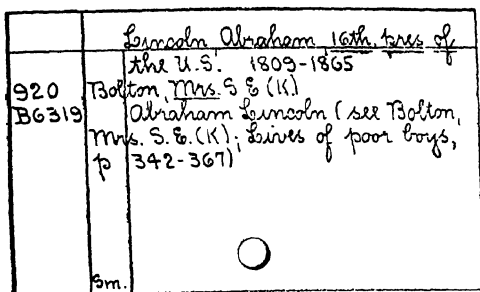 Lincoln, Abraham, 16th. pres. of
the U.S. 1809-1865
920 Bolton, Mrs. S E (K)
B6319 Abraham Lincoln (see Bolton,
Mrs. S. E. (K); Lives of poor boys,
p 342-367)
Sm.